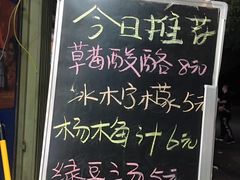 今日推荐
草莓酸酪 8元
冰木宁檬 5元
杨梅汁 6元
绿豆汤 5元